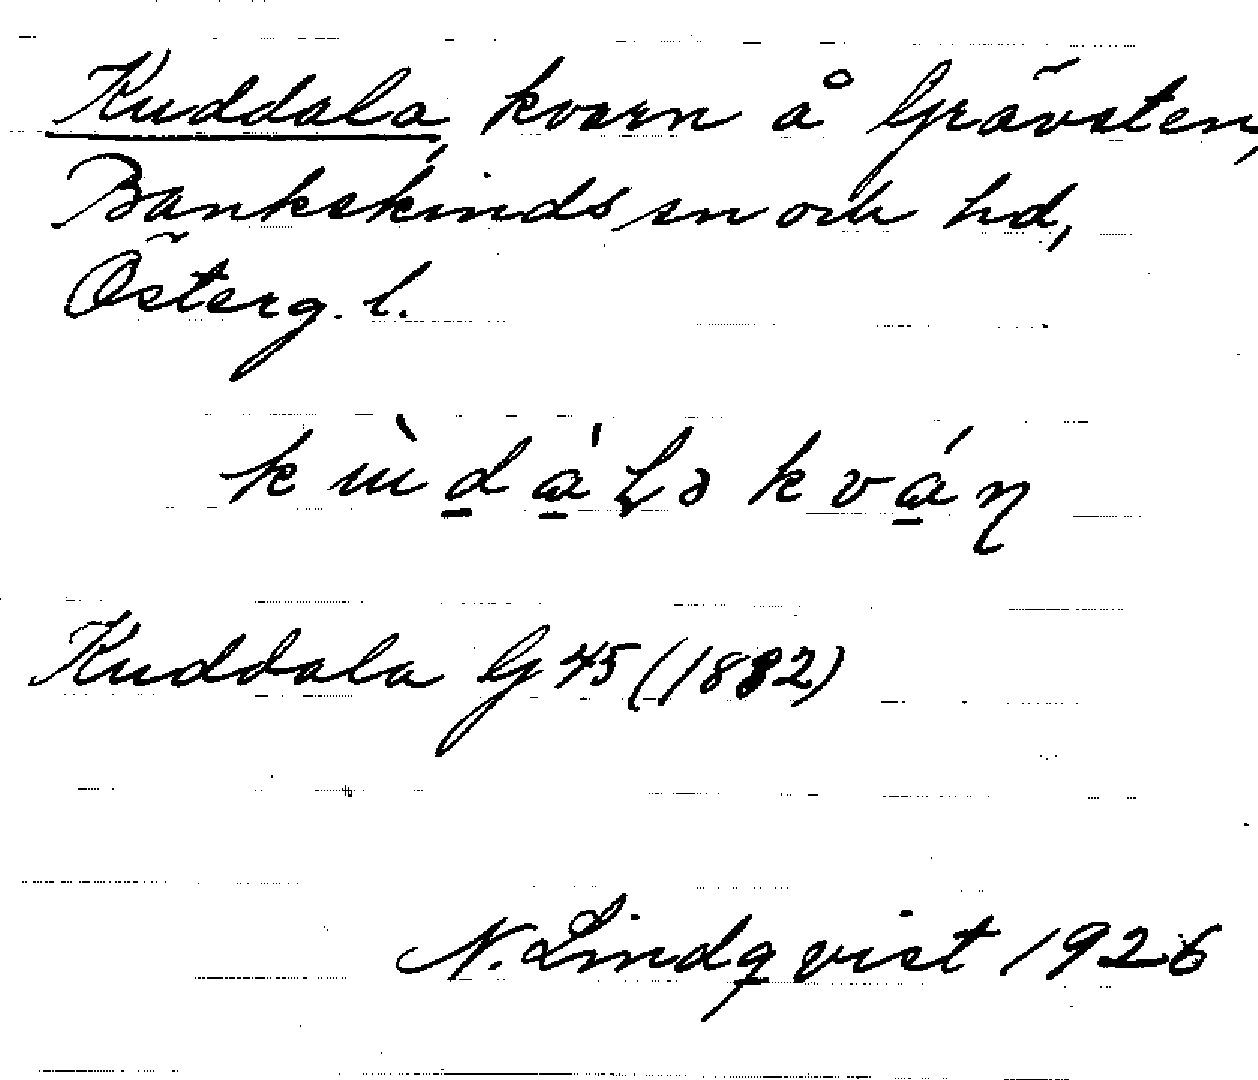 Kuddala, kvarn å Grävsten,
Bankekinds sn och hd,
Österg. l.
Kuddala G 45 (1882)
N. Lindqvist 1926